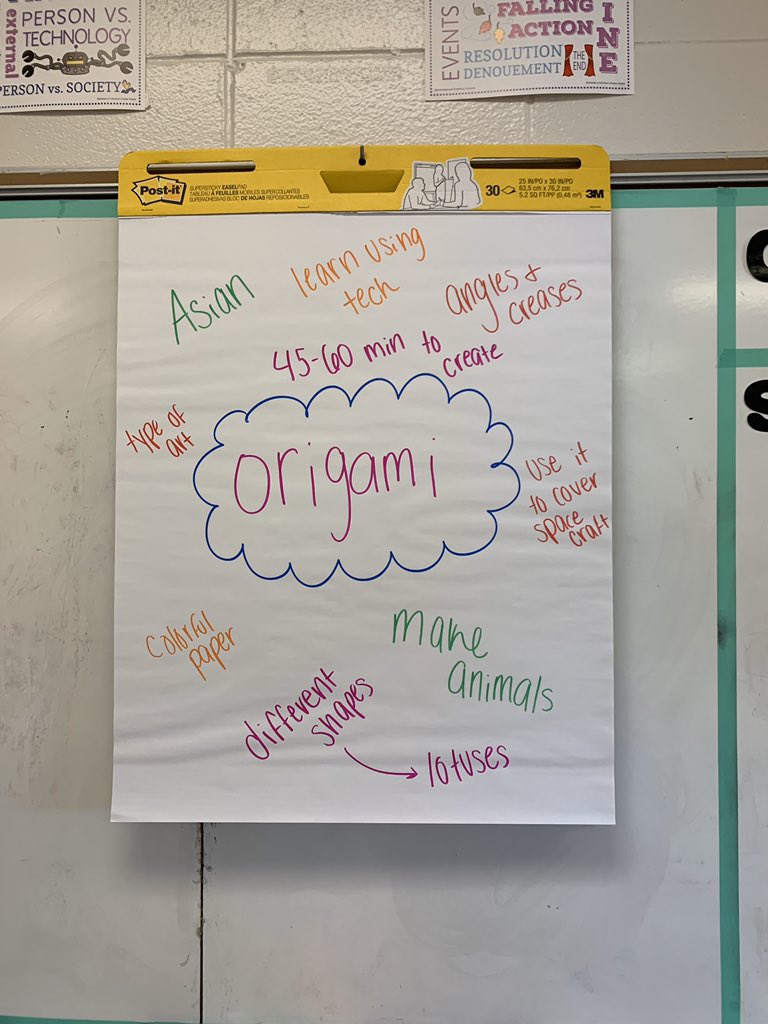 external
PERSON VS.
TECHNOLOGY
PERSON vs. SOCIETY
EVENTS
FALLING
ACTION
RESOLUTION
DENOUEMENT
THE
END
INE
Post-it
SUPERSTICKY EASELPAD
TABLEAU À FEUILLES MOBILES SUPERCOLLANTES
SUPERADHESIVAS BLOC DE HOJAS REPOSICIONABLES
30
25 IN/PO x 30 IN/PO
63,5 cm x 76,2 cm
5.2 SQ FT/PP (0,48 m²)
3M
Asian
learn using
tech
angles &
creases
45-60 min to
create
type of
art
origami
use it
to cover
space
craft
colorful
paper
make
animals
different
shapes
lotuses